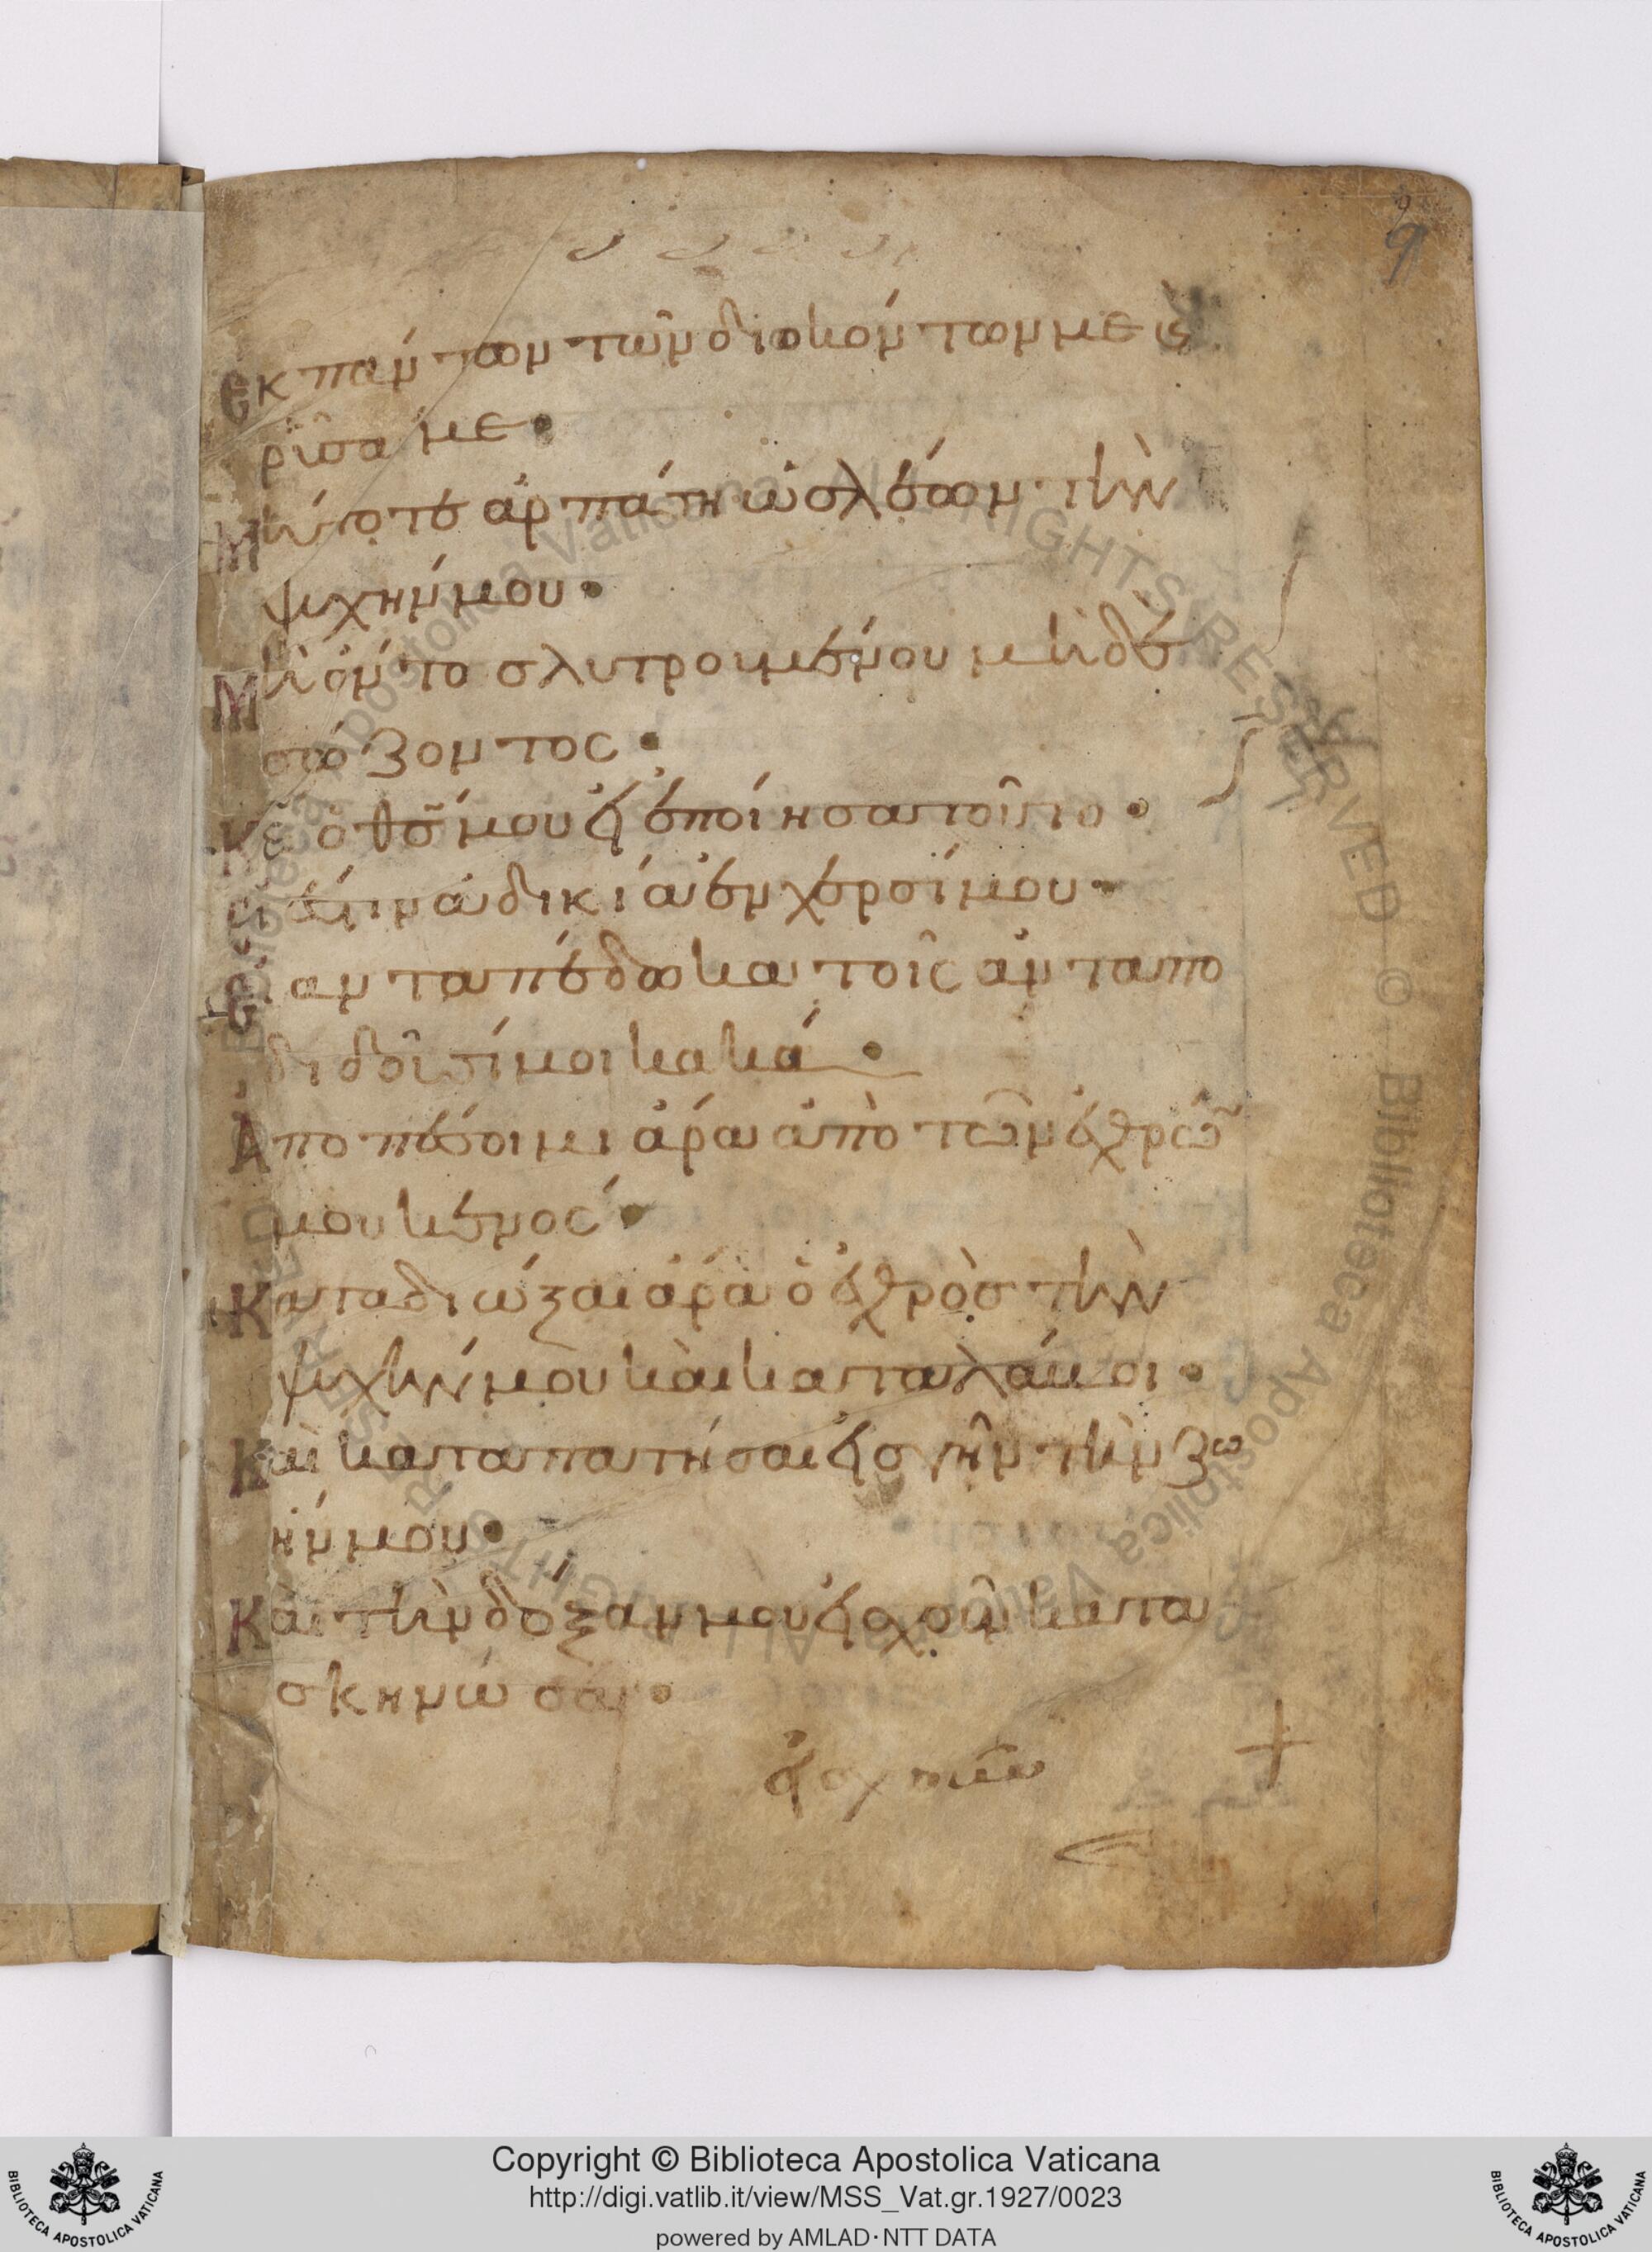 9
9
Ἐκ πάντων τῶν διοκόντων με κς
ρῦσαι με·
Μήποτε ἁρπάση ὡς λέων τὴν
ψυχήν μου·
Μὴ ὄντος λυτρουμένου μηδὲ
σώζοντος·
Κε ὁ θς μου εἰ ἐποίησα τοῦτο·
Εἰ ἔστιν ἀδικία ἐν χερσί μου·
Εἰ ανταπέδωκα τοῖς ἀνταπο
διδοῦσί μοι κακά·
Ἀποπέσοιμι ἄρα ἀπὸ τῶν ἐχθρῶ
μου κενός·
Καταδιώξαι ἄρα ὁ ἐχθρὸς τὴν
ψυχήν μου καὶ καταλάβοι·
Καὶ καταπατήσαι εἰς γῆν τὴν ζω
ήν μου·
Καὶ τὴν δόξαν μου εἰς χοῦν κατα
σκηνώσαι·
Copyright © Biblioteca Apostolica Vaticana
http://digi.vatlib.it/view/MSS_Vat.gr.1927/0023
powered by AMLAD·NTT DATA
BIBLIOTECA APOSTOLICA VATICANA
BIBLIOTECA APOSTOLICA VATICANA